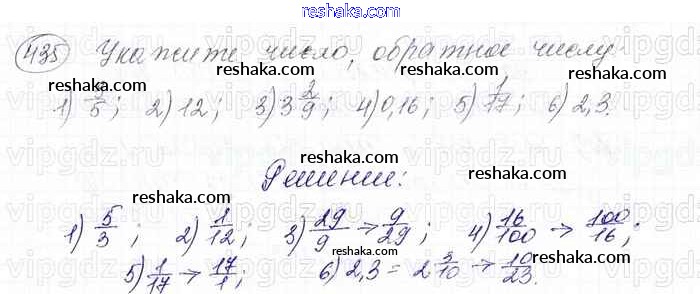 reshaka.com
435 Укажите число, обратное числу
reshaka.com reshaka.com reshaka.com
1) 3/5; 2) 12; 3) 3 2/9; 4) 0,16; 5) 1/17; 6) 2,3.
vipgdz.ru vipgdz.ru vipgdz.ru
reshaka.com
Решение:
reshaka.com reshaka.com reshaka.com
1) 5/3; 2) 1/12; 3) 29/9 → 9/29; 4) 16/100 → 100/16;
reshaka.com
5) 1/17 → 17/1; 6) 2,3 = 2 3/10 → 10/23.
reshaka.com